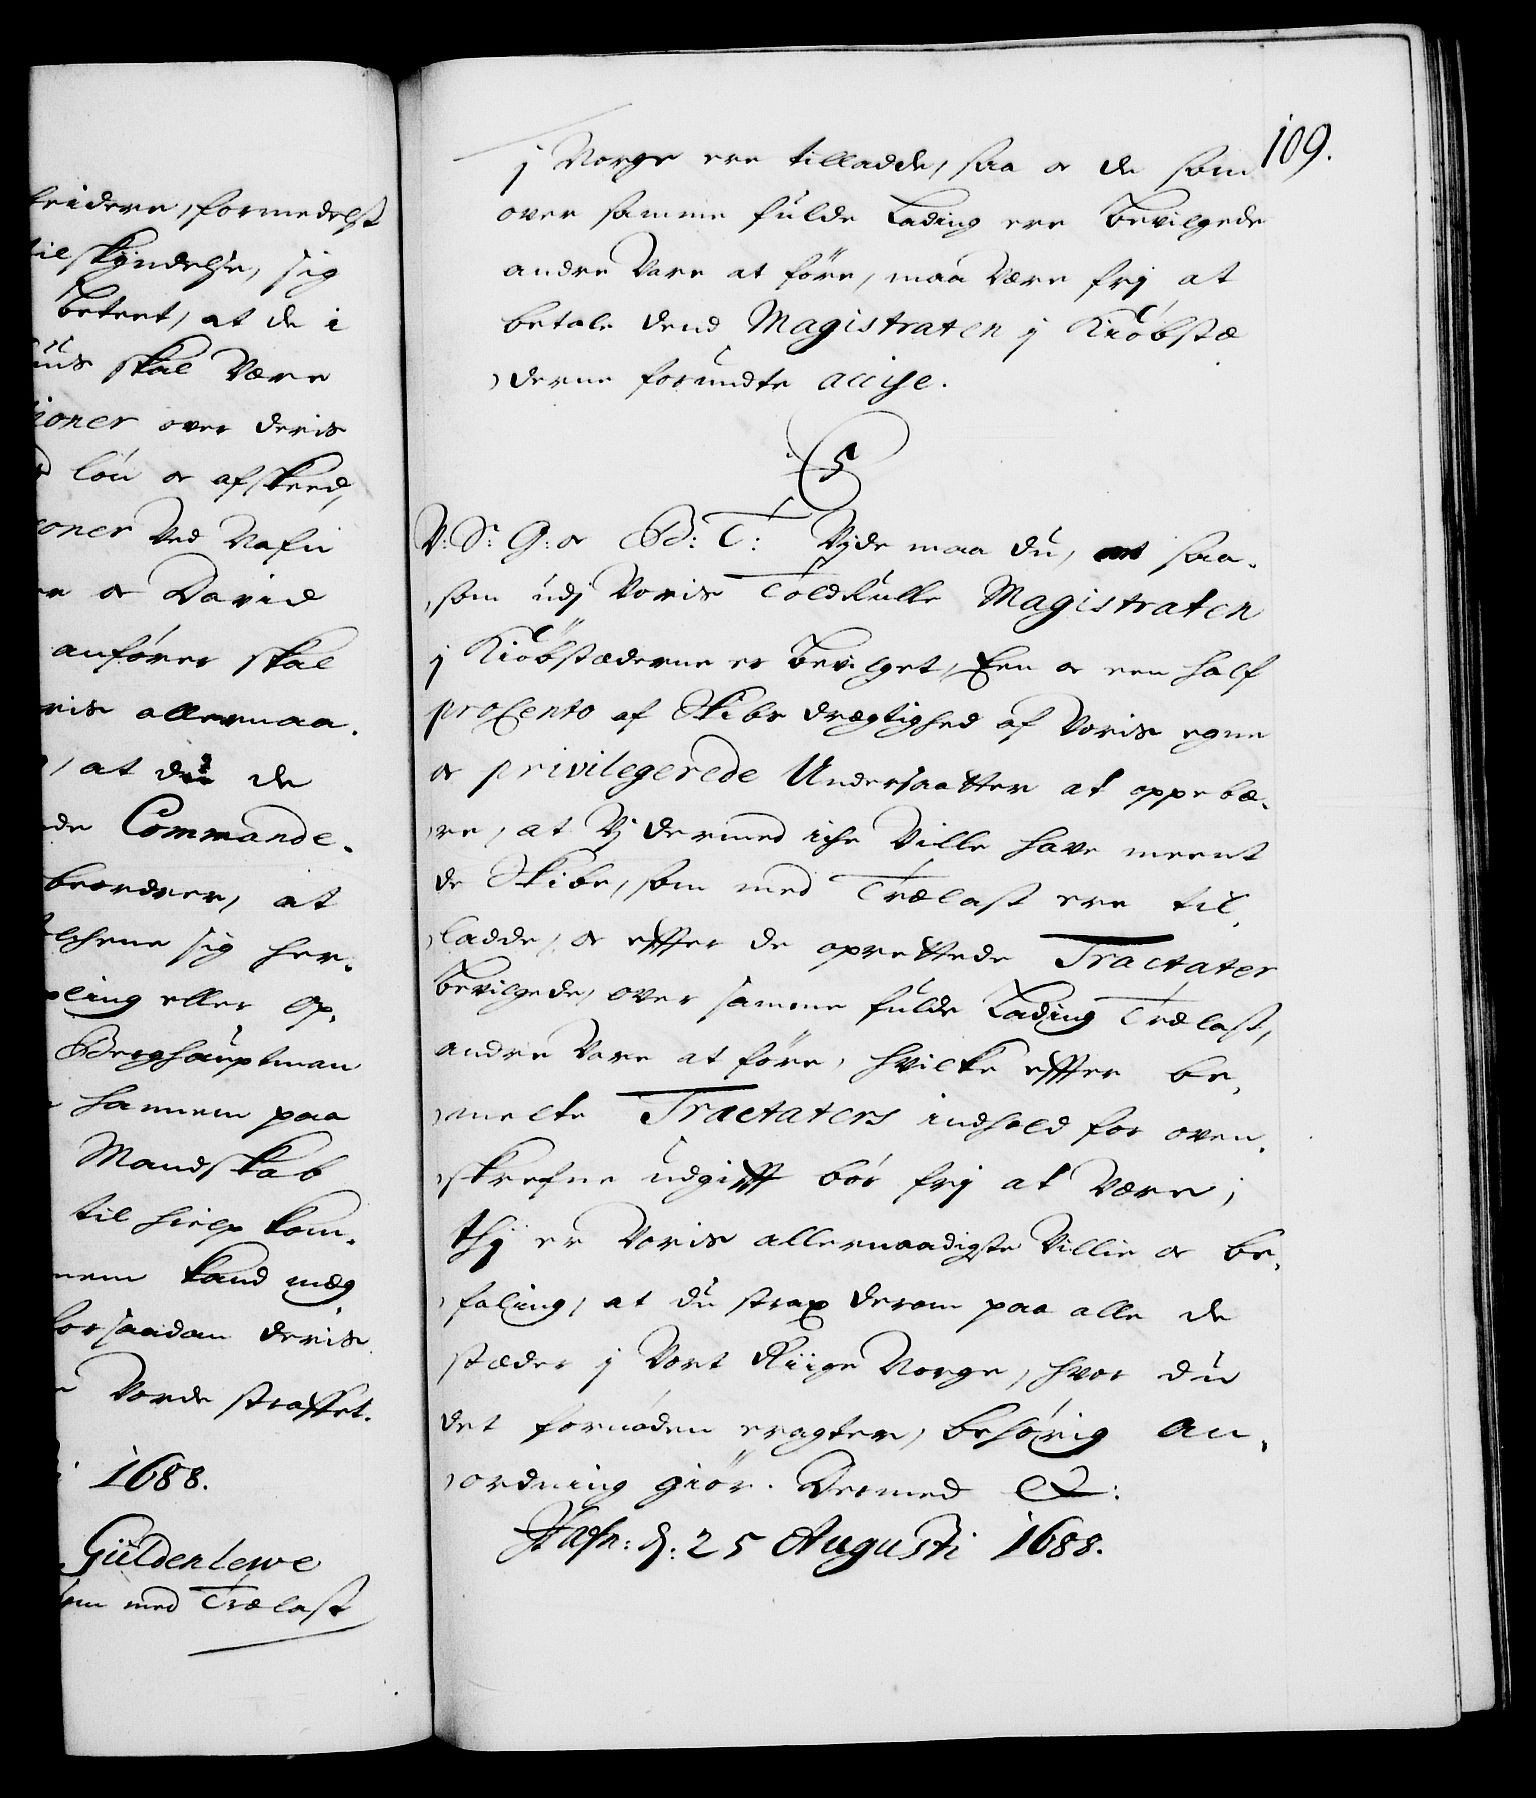 keidere, formedelst
tilskÿndelse, sig
beteet, at de i
huus skal Være
ioner over deris
løn og afskeed,
oner Ved Nafn
og David
anfører skal
ris allernaa-
, at du de
de Commande-
beordrer, at
sig her-
pling eller op-
Berghauptman
hannem paa
Mandskab
til hielp kom-
nem kand mæg
for saadan deris
Vorde straffet.
1688.
Güldenlewe
som med Trælast
109.
j Norge ere tilladde, saa og de som
over samme fulde Lading ere bevilgede
andre Vare at føre, maa være frj at
betale dend Magistraten j Kiøbstæ
derne forundte accise.
V: Sr G: og B: T: Vjde maa du, at saa-
som udj Voris Toldrulle Magistraten
j Kiøbstæderne er bevilget, Een og een half
procento af Skibs drægtighed af Voris egne
og privilegerede Undersaatter at oppebæ-
re, at Vj dermed iche Ville have meent
de Skibe, som med Trælast ere til-
ladde, og effter de oprettede Tractater
bevilgede, over samme fulde Lading Trælast,
andre Vare at føre, hvilke effter be-
melte Tractaters indhold for oven-
skrefne udgifft bør frj at være;
thj er Voris allernaadigste Villie og be-
faling, at du strax derom paa alle de
stæder j Vort Riige Norge, hvor du
det fornøden eragter, behørig an-
ordning giør. Dermed &:
Hafn: d: 25 Augusti 1688.